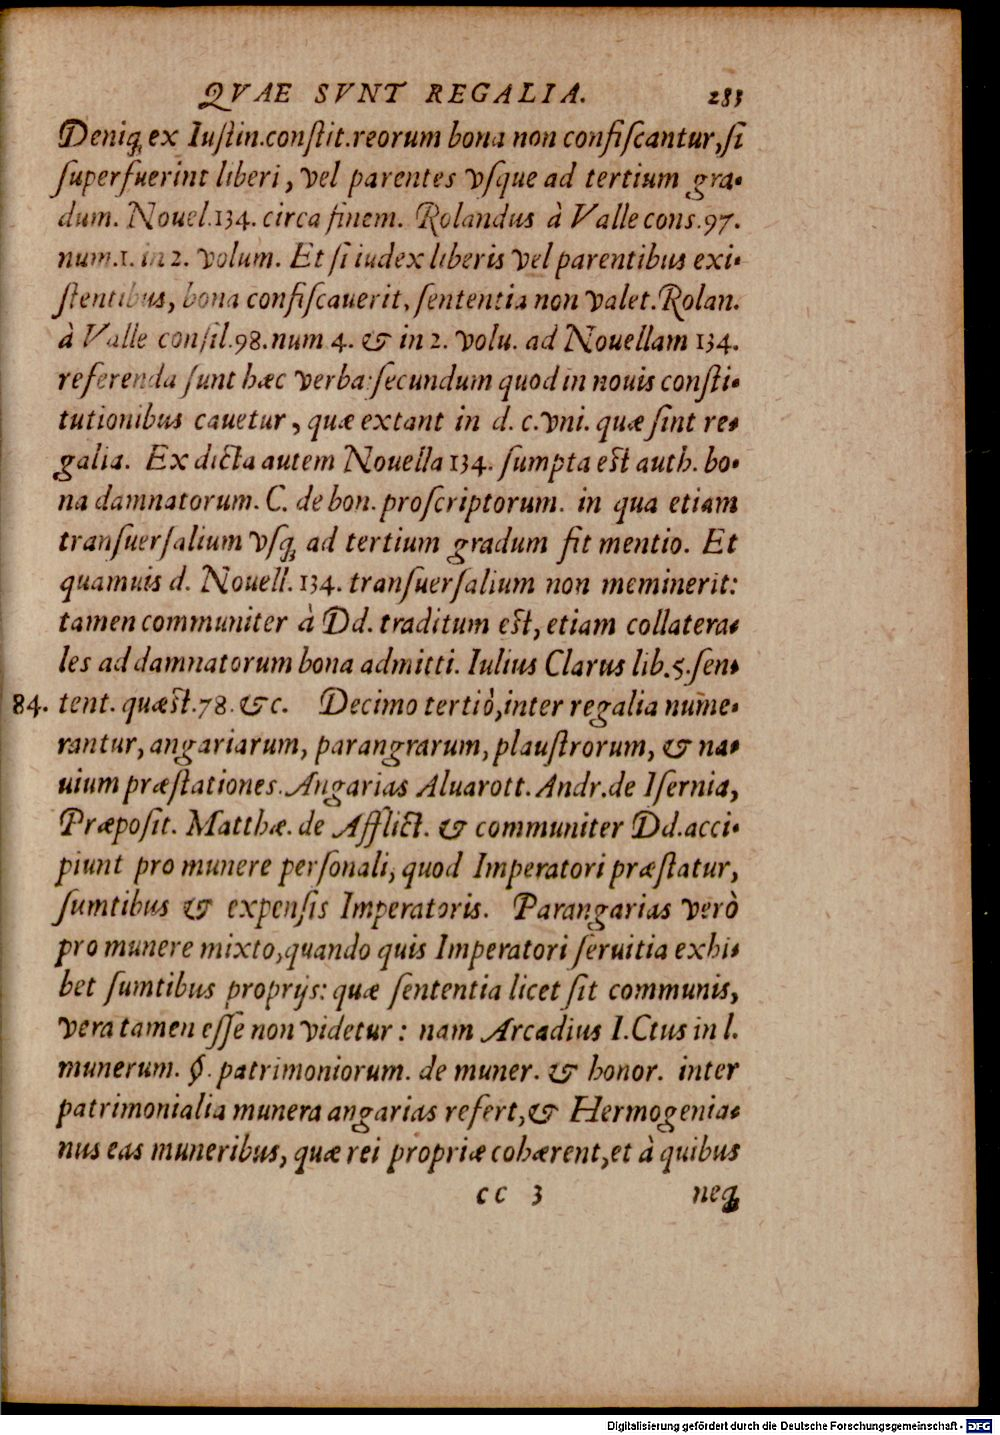 QVAE SVNT REGALIA. 283
Deniq; ex Iuſtin.conſtit.reorum bona non confiſcantur,ſi
ſuperfuerint liberi, vel parentes vſque ad tertium gra-
dum. Nouel.134. circa finem. Rolandus à Valle cons.97.
num.1. in 2. volum. Et ſi iudex liberis vel parentibus exi-
ſtentibus, bona confiſcauerit, ſententia non valet.Rolan.
à Valle conſil.98.num 4. & in 2. volu. ad Nouellam 134.
referenda ſunt hæc verba:ſecundum quod in nouis conſti-
tutionibus cauetur, quæ extant in d. c.vni. quæ ſint re-
galia. Ex dicta autem Nouella 134. ſumpta eſt auth. bo-
na damnatorum. C. de bon. proſcriptorum. in qua etiam
tranſuerſalium vſq; ad tertium gradum fit mentio. Et
quamuis d. Nouell. 134. tranſuerſalium non meminerit:
tamen communiter à Dd. traditum eſt, etiam collatera-
les ad damnatorum bona admitti. Iulius Clarus lib.5.ſen-
84. tent. quæſt.78. &c. Decimo tertiò,inter regalia nume-
rantur, angariarum, parangrarum, plauſtrorum, & na-
uium præſtationes. Angarias Aluarott. Andr.de Iſernia,
Præpoſit. Matthæ. de Afflict. & communiter Dd.acci-
piunt pro munere perſonali, quod Imperatori præſtatur,
ſumtibus & expenſis Imperatoris. Parangarias verò
pro munere mixto,quando quis Imperatori ſeruitia exhi-
bet ſumtibus proprijs: quæ ſententia licet ſit communis,
vera tamen eſſe non videtur: nam Arcadius I.Ctus in l.
munerum. §. patrimoniorum. de muner. & honor. inter
patrimonialia munera angarias refert,& Hermogenia-
nus eas muneribus, quæ rei propriæ cohærent,et à quibus
cc 3 neq;
Digitalisierung gefördert durch die Deutsche Forschungsgemeinschaft - DFG